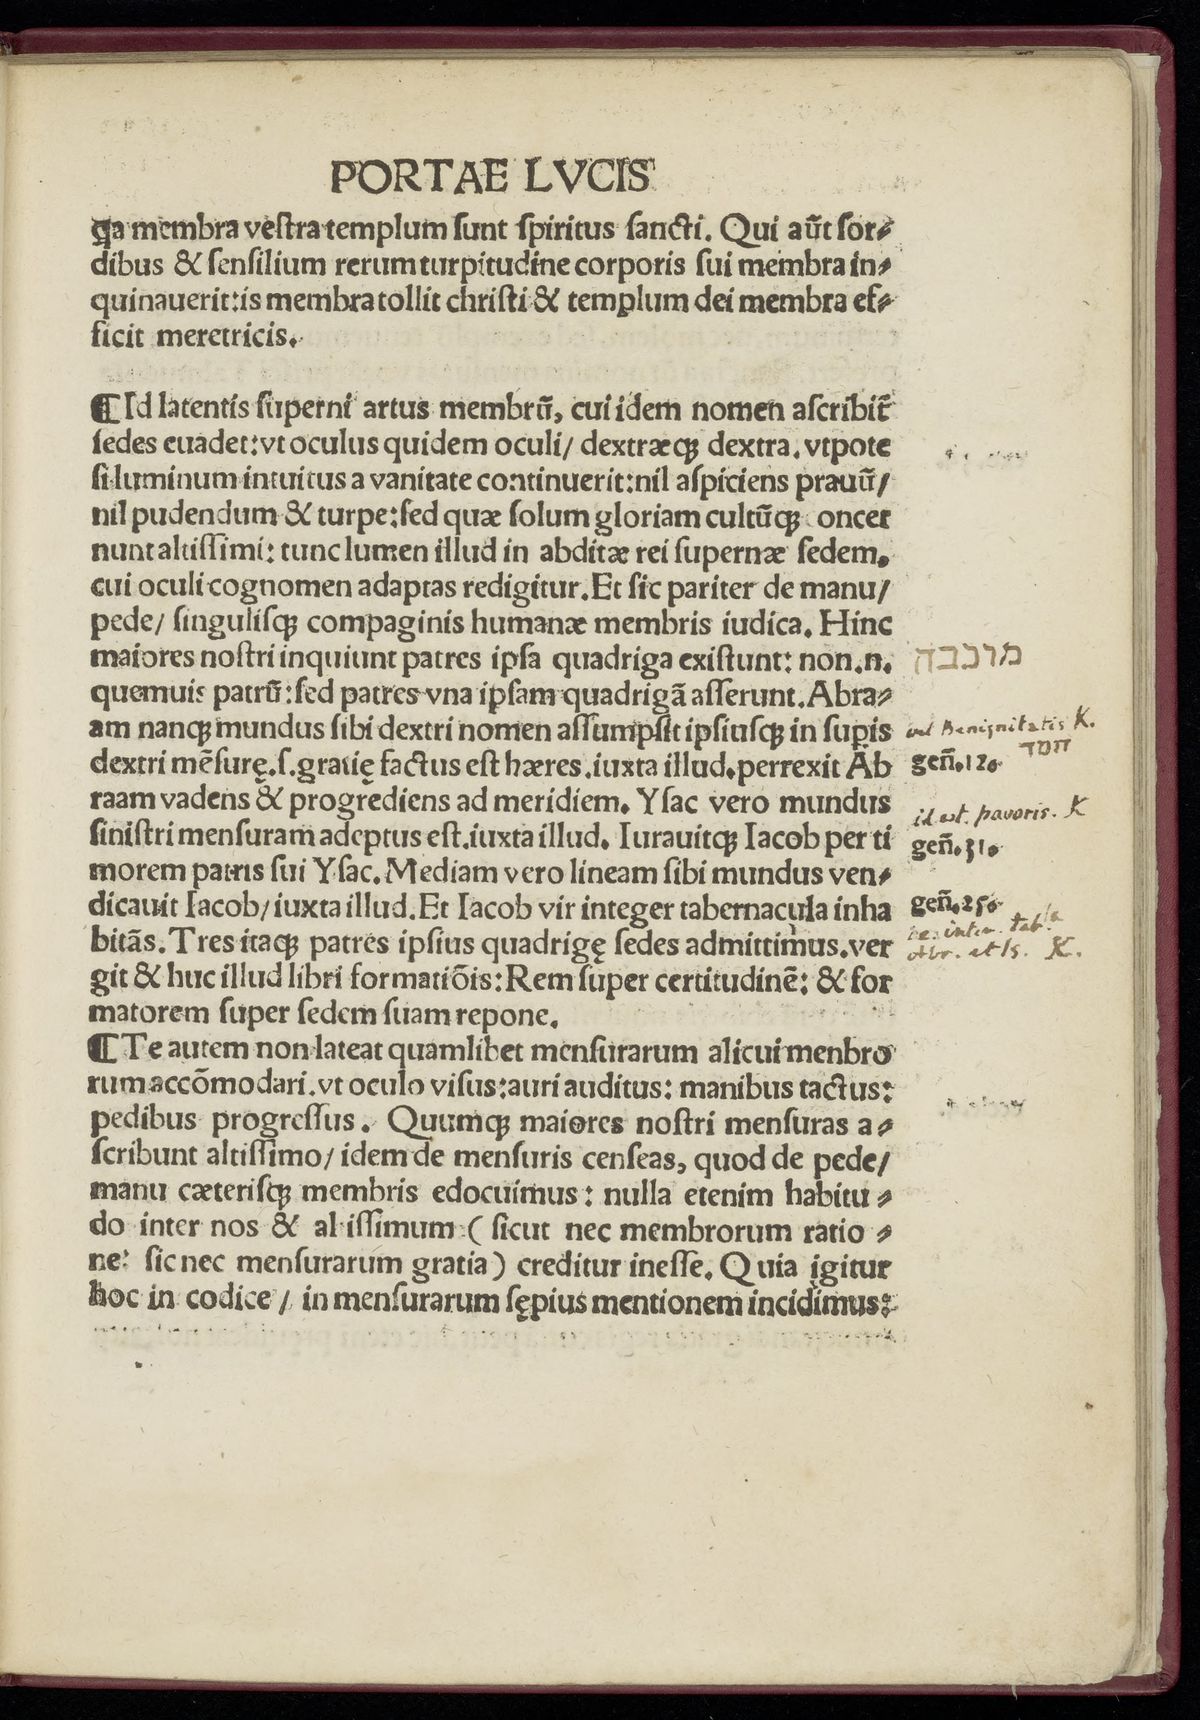 PORTAE LVCIS
ꝗa membra veſtra templum ſunt ſpiritus ſancti. Qui aũt ſor⸗
dibus & ſenſilium rerum turpitudine corporis ſui membra in⸗
quinauerit: is membra tollit chriſti & templum dei membra ef⸗
ficit meretricis.
¶ Id latentis ſuperni artus membrũ, cui idem nomen aſcribit̃
ſedes euadet: vt oculus quidem oculi/ dextræqꝫ dextra. vtpote
ſi luminum intuitus a vanitate continuerit: nil aſpiciens prauũ/
nil pudendum & turpe: ſed quæ ſolum gloriam cultũqꝫ oncer
nunt altiſſimi: tunc lumen illud in abditæ rei ſupernæ ſedem.
cui oculi cognomen adaptas redigitur. Et ſic pariter de manu/
pede/ ſinguliſqꝫ compaginis humanæ membris iudica. Hinc
maiores noſtri inquiunt patres ipſa quadriga exiſtunt: non.n.
מרכבה
quemuis patrũ: ſed patres vna ipſam quadrigã aſſerunt. Abra⸗
am nanqꝫ mundus ſibi dextri nomen aſſumpſit ipſiuſqꝫ in ſuꝑis
vel Benignitatis K.
חסד
dextri mẽſurę.ſ.gratię factus eſt hæres. iuxta illud. perrexit Ab
geñ.12.
raam vadens & progrediens ad meridiem. Yſac vero mundus
id est. pavoris. K
ſiniſtri menſuram adeptus eſt. iuxta illud. Iurauitqꝫ Iacob per ti
geñ.31.
morem patris ſui Yſac. Mediam vero lineam ſibi mundus ven⸗
dicauit Iacob/ iuxta illud. Et Iacob vir integer tabernacula inha
geñ.25.
bitãs. Tres itaqꝫ patres ipſius quadrigę ſedes admittimus. ver
Abr. et Is. K.
git & huc illud libri formatiõis: Rem ſuper certitudinẽ: & for
matorem ſuper ſedem ſuam repone.
¶ Te autem non lateat quamlibet menſurarum alicui menbro
rum accõmodari. vt oculo viſus: auri auditus: manibus tactus:
pedibus progreſſus. Quumqꝫ maiores noſtri menſuras a⸗
ſcribunt altiſſimo/ idem de menſuris cenſeas, quod de pede/
manu cæteriſqꝫ membris edocuimus: nulla etenim habitu⸗
do inter nos & al iſſimum (ſicut nec membrorum ratio⸗
ne: ſic nec menſurarum gratia) creditur ineſſe. Quia igitur
hoc in codice/ in menſurarum ſępius mentionem incidimus: